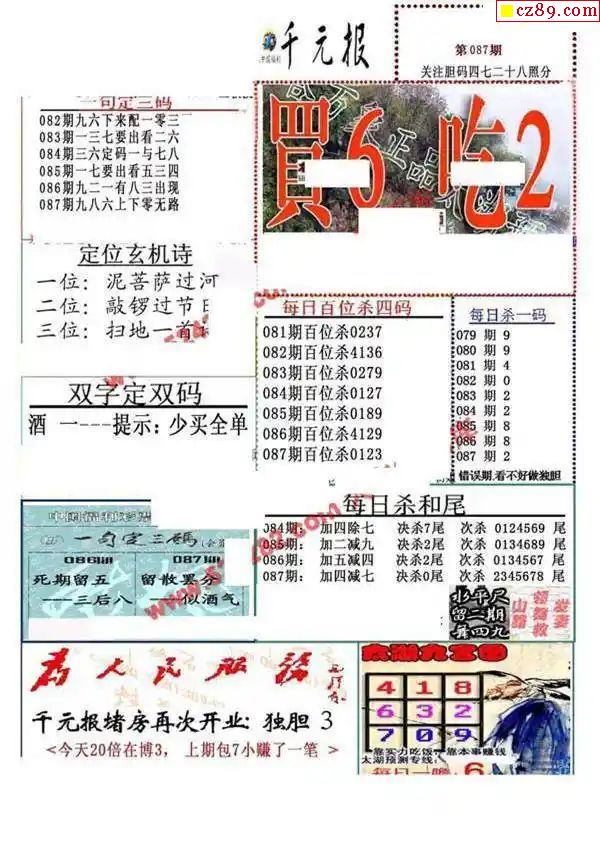 cz89.com
千元报
第087期
关注胆码四七二十八照分
一句定三码
082期九六下来配一零三
083期一三七要出看二六
084期三六定码一与七八
085期一七要出看五三四
086期九二一有八三出现
087期九八六上下零无路
買6 吃2
定位玄机诗
一位：泥菩萨过河
二位：敲锣过节日
三位：扫地一首
每日百位杀四码
081期百位杀0237
082期百位杀4136
083期百位杀0279
084期百位杀0127
085期百位杀0189
086期百位杀4129
087期百位杀0123
每日杀一码
079 期 9
080 期 9
081 期 4
082 期 0
083 期 2
084 期 2
085 期 8
086 期 8
087 期 2
错误期.看不好做独胆
双字定双码
酒 一---提示：少买全单
每日杀和尾
084期： 加四除七 决杀7尾 次杀 0124569 尾
085期： 加二减九 决杀2尾 次杀 0134689 尾
086期： 加五减四 决杀2尾 次杀 0134567 尾
087期： 加四减七 决杀0尾 次杀 2345678 尾
一句定三码
086期 087期
死期留五 留散罢分
---三后八 ---似酒气
为人民服务
千元报堵房再次开业：独胆 3
<今天20倍在博3， 上期包7小赚了一笔 >
太湖九宫图
4 1 8
6 3 2
7 0 9
靠实力吃饭，靠本事赚钱
太湖预测专线：
每日一胆 6